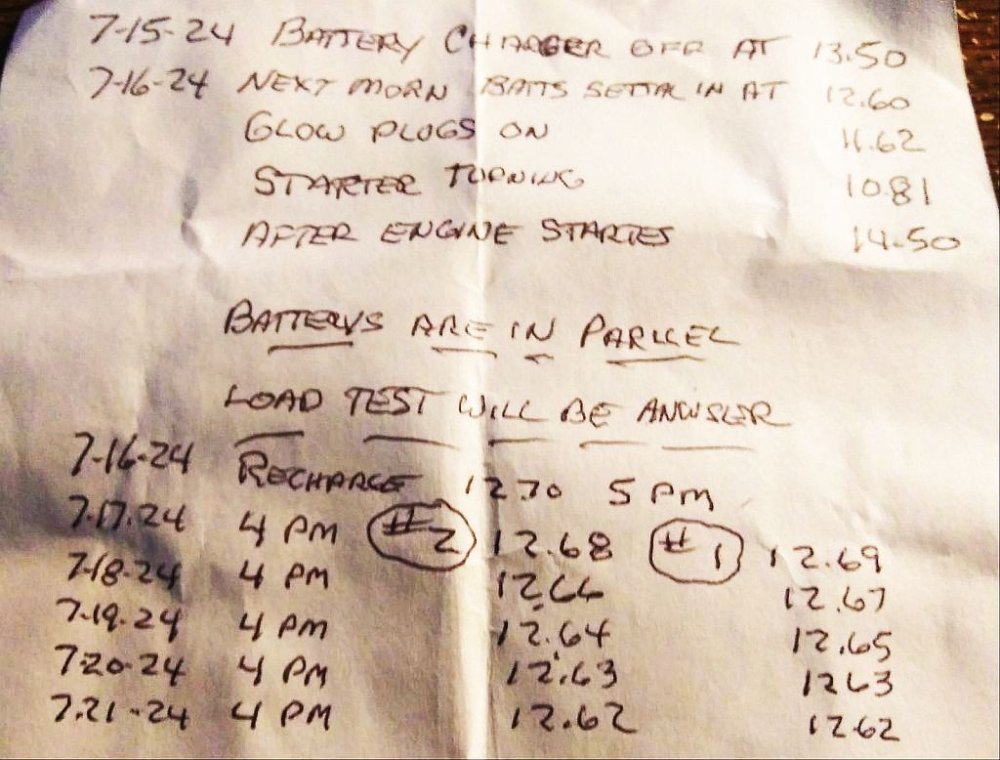 7-15-24 BATTERY CHARGER OFF AT 13.50
7-16-24 NEXT MORN BATTS IN AT 12.60
GLOW PLUGS ON 11.62
STARTER TURNING 10.81
AFTER ENGINE STARTES 14.50
BATTERYS ARE IN PARLLEL
LOAD TEST WILL BE ANWSER
7-16-24 RECHARGE 12.70 5 PM
7.17.24 4 PM #2 12.68 #1 12.69
7-18-24 4 PM 12.66 12.67
7-19-24 4 PM 12.64 12.65
7-20-24 4 PM 12.63 12.63
7.21-24 4 PM 12.62 12.62